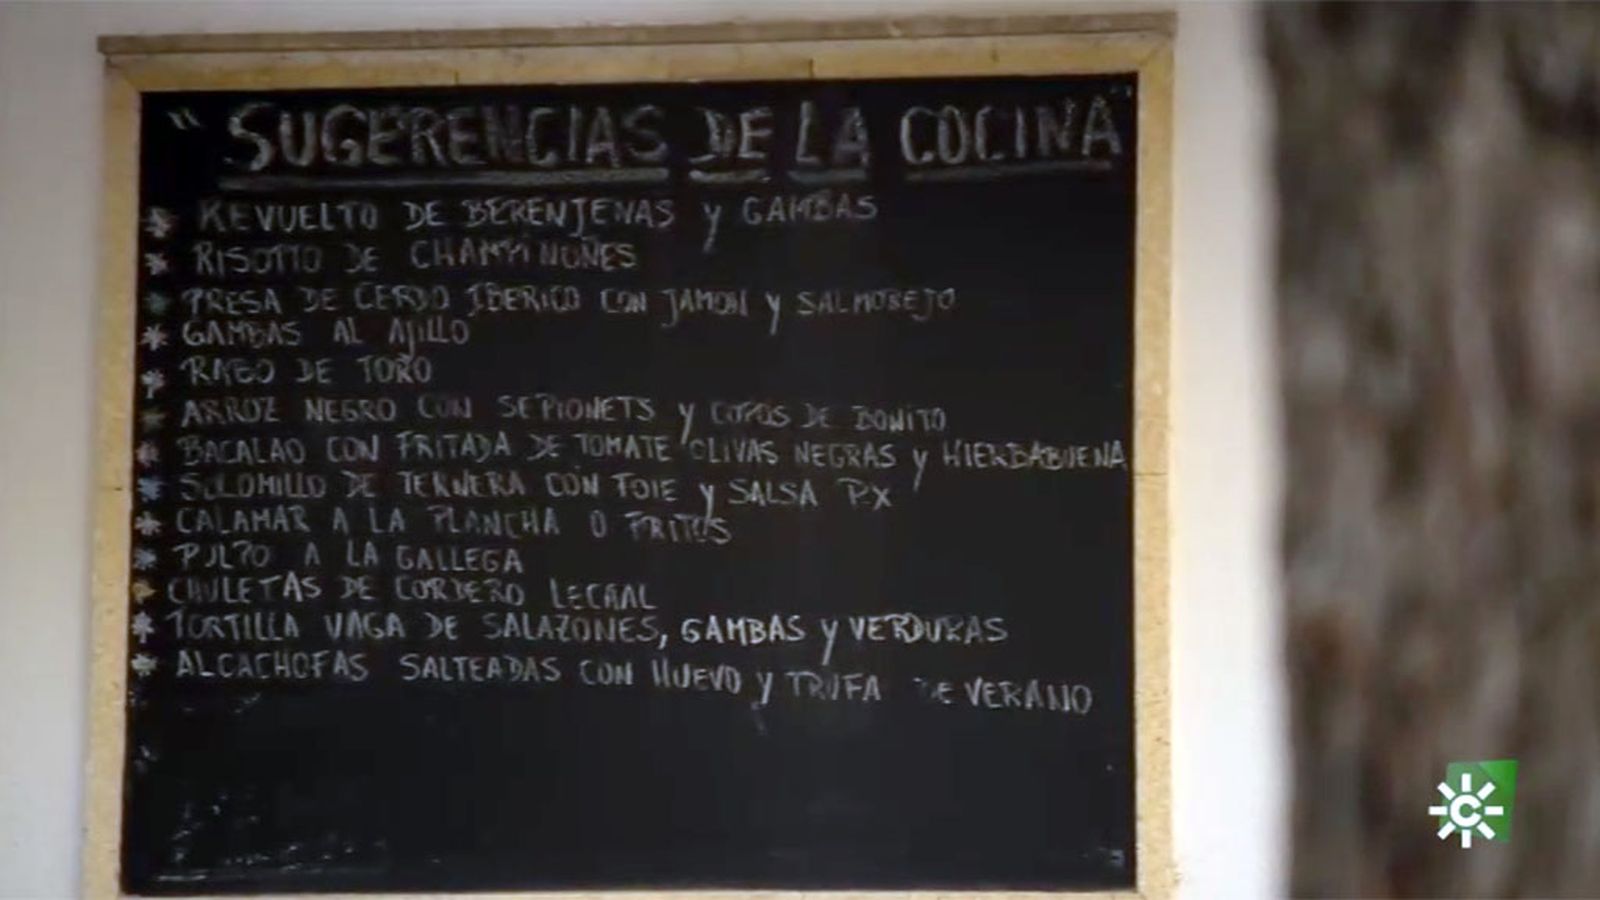 " SUGERENCIAS DE LA COCINA "
* REVUELTO DE BERENJENAS y GAMBAS
* RISOTTO DE CHAMPIÑONES
* PRESA DE CERDO IBERICO CON JAMON y SALMOREJO
* GAMBAS AL AJILLO
* RABO DE TORO
* ARROZ NEGRO CON SEPIONETS y COPOS DE BONITO
* BACALAO CON FRITADA DE TOMATE OLIVAS NEGRAS y HIERBABUENA
* SOLOMILLO DE TERNERA CON FOIE y SALSA P.X
* CALAMAR A LA PLANCHA O FRITOS
* PULPO A LA GALLEGA
* CHULETAS DE CORDERO LECHAL
* TORTILLA VAGA DE SALAZONES, GAMBAS y VERDURAS
* ALCACHOFAS SALTEADAS CON HUEVO y TRUFA DE VERANO
C